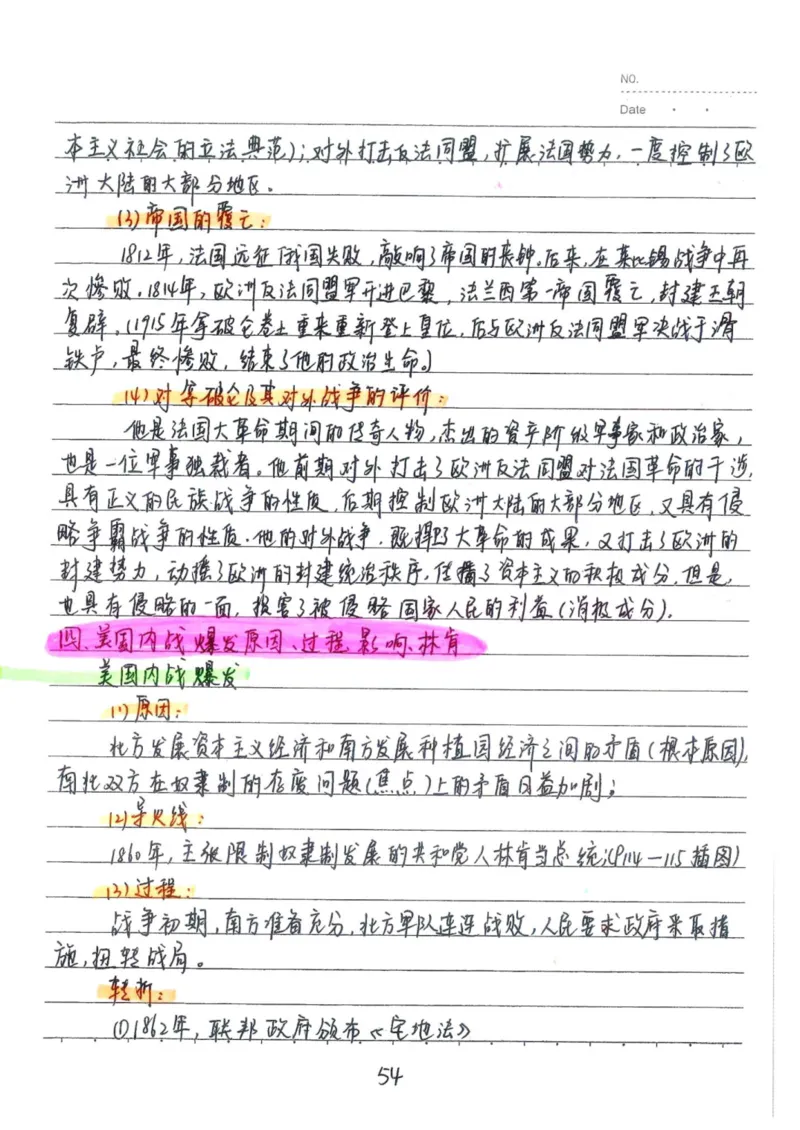 NO.
Date
本主义社会的立法典范);对外打击反法同盟,扩展法国势力,一度控制了欧
洲大陆的大部分地区。
(3)帝国的覆亡:
1812年,法国远征俄国失败,敲响了帝国的丧钟。后来,在莱比锡战争中再
次惨败。1814年,欧洲反法同盟军开进巴黎,法兰西第一帝国覆亡,封建王朝
复辟。(1915年拿破仑卷土重来重新登上皇位,后与欧洲反法同盟军决战于滑
铁卢,最终惨败,结束了他的政治生命。)
(4)对拿破仑及其对外战争的评价:
他是法国大革命期间的传奇人物,杰出的资产阶级军事家和政治家,
也是一位军事独裁者。他前期对外打击了欧洲反法同盟对法国革命的干涉,
具有正义的民族战争的性质,后期控制欧洲大陆的大部分地区,又具有侵
略争霸战争的性质。他的对外战争,既捍卫了大革命的成果,又打击了欧洲的
封建势力,动摇了欧洲的封建统治秩序,传播了资本主义的积极成分。但是,
也具有侵略的一面,损害了被侵略国家人民的利益(消极成分).
四、美国内战爆发原因、过程、影响、林肯
美国内战爆发
(1)原因:
北方发展资本主义经济和南方发展种植园经济之间的矛盾(根本原因),
南北双方在奴隶制的存废问题(焦点)上的矛盾日益加剧;
(2)导火线:
1860年,主张限制奴隶制发展的共和党人林肯当总统;(P114—115插图)
(3)过程:
战争初期,南方准备充分,北方军队连连战败,人民要求政府采取措
施,扭转战局。
转折:
①1862年,联邦政府颁布《宅地法》
54